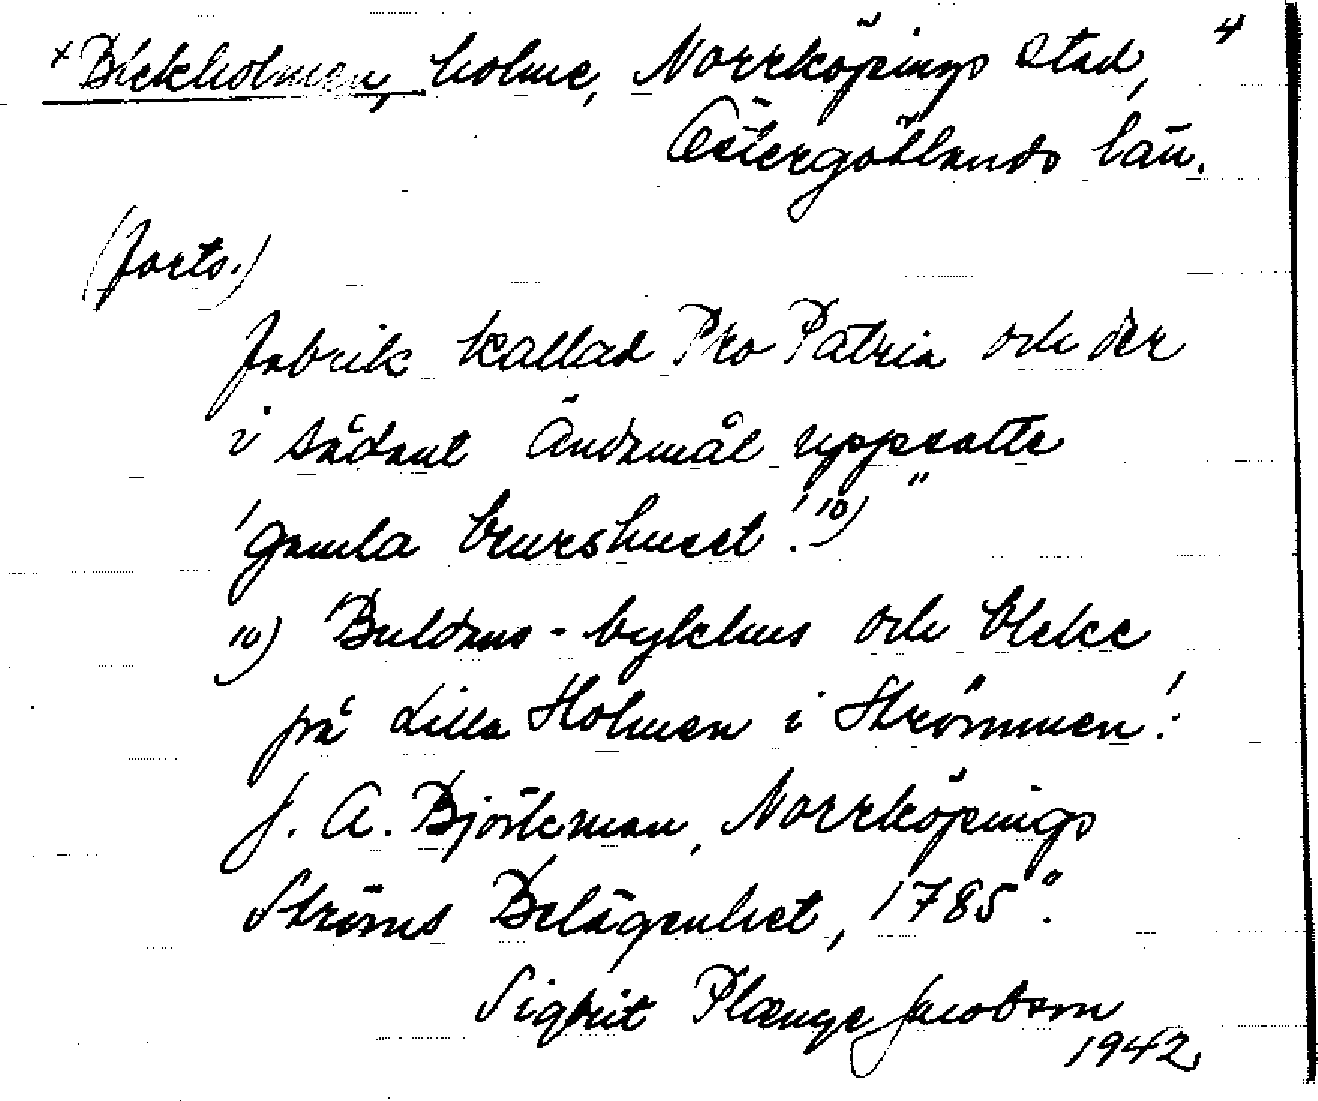 x Blekholmen, holme, Norrköpings stad, 4
Östergötlands län.
(forts.)
fabrik kallad Pro Patria och der
i sådant Ändamål uppsatte
'gamla brurshuset'.10)"
10) Buldans-bykhus och bleke
på Lilla Holmen i Strömmen'.
J. A. Björkman, Norrköpings
Ströms Belägenhet, 1785".
Sigbrit Plænge Jacobson
1942